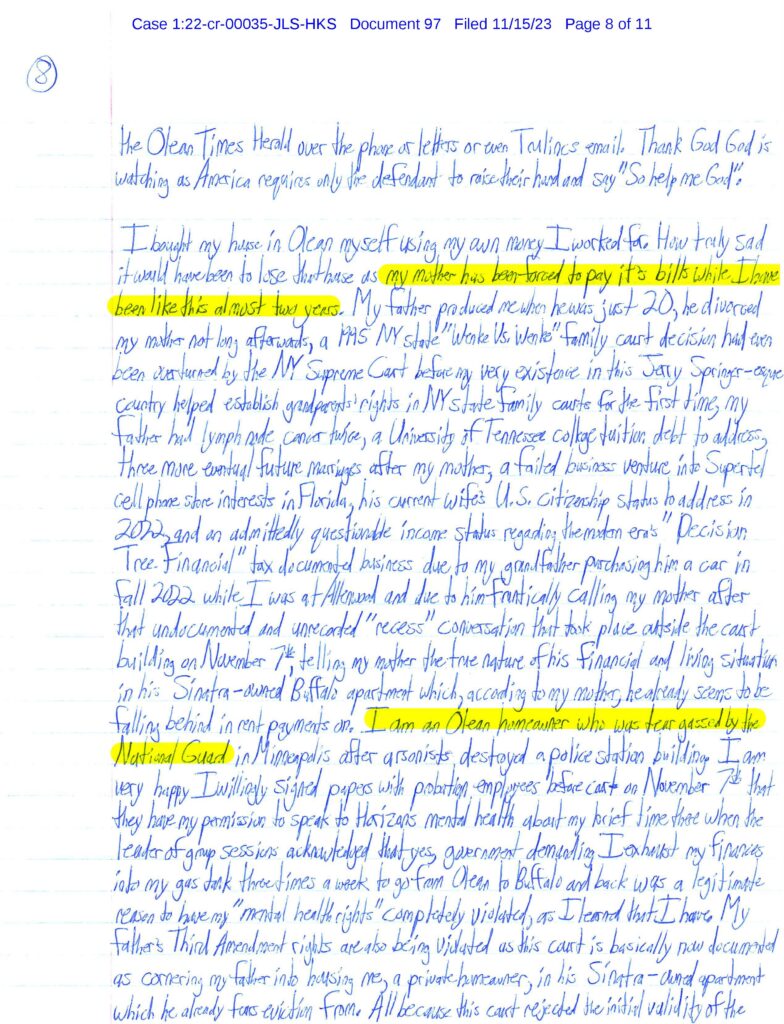 Case 1:22-cr-00035-JLS-HKS Document 97 Filed 11/15/23 Page 8 of 11
8
the Olean Times Herald over the phone or letters or even Trulincs email. Thank God God is
watching as America requires only the defendant to raise their hand and say "So help me God".
I bought my house in Olean myself using my own money I worked for. How truly sad
it would have been to lose that house as my mother has been forced to pay it's bills while I have
been like this almost two years. My father produced me when he was just 20, he divorced
my mother not long afterwards, a NY state "Wenke Vs. Wenke" family court decision had even
been overturned by the NY Supreme Court before my very existence in this Jerry Springer-esque
country helped establish grandparents' rights in NY state family courts for the first time, my
father had lymph node cancer twice, a University of Tennessee college tuition debt to address,
three more eventual future marriages after my mother, a failed business venture into Supertel
cell phone store interests in Florida, his current wife's U.S. citizenship status to address in
2022, and an admittedly questionable income status regarding the modern era's "Decision
Tree Financial" tax documented business due to my grandfather purchasing him a car in
fall 2022 while I was at Allenwood and due to him frantically calling my mother after
that undocumented and unrecorded "recess" conversation that took place outside the court
building on November 7th, telling my mother the true nature of his financial and living situation
in his Sinatra-owned Buffalo apartment which, according to my mother, he already seems to be
falling behind in rent payments on. I am an Olean homeowner who was tear gassed by the
National Guard in Minneapolis after arsonists destroyed a police station building. I am
very happy I willingly signed papers with probation employees before court on November 7th that
they have my permission to speak to Horizons mental health about my brief time there when the
leader of group sessions acknowledged that yes, government demanding I exhaust my finances
into my gas tank three times a week to go from Olean to Buffalo and back was a legitimate
reason to have my "mental health rights" completely violated, as I learned that I have. My
father's Third Amendment rights are also being violated as this court is basically now documented
as cornering my father into housing me, a private homeowner, in his Sinatra-owned apartment
which he already fears eviction from. All because this court rejected the initial validity of the